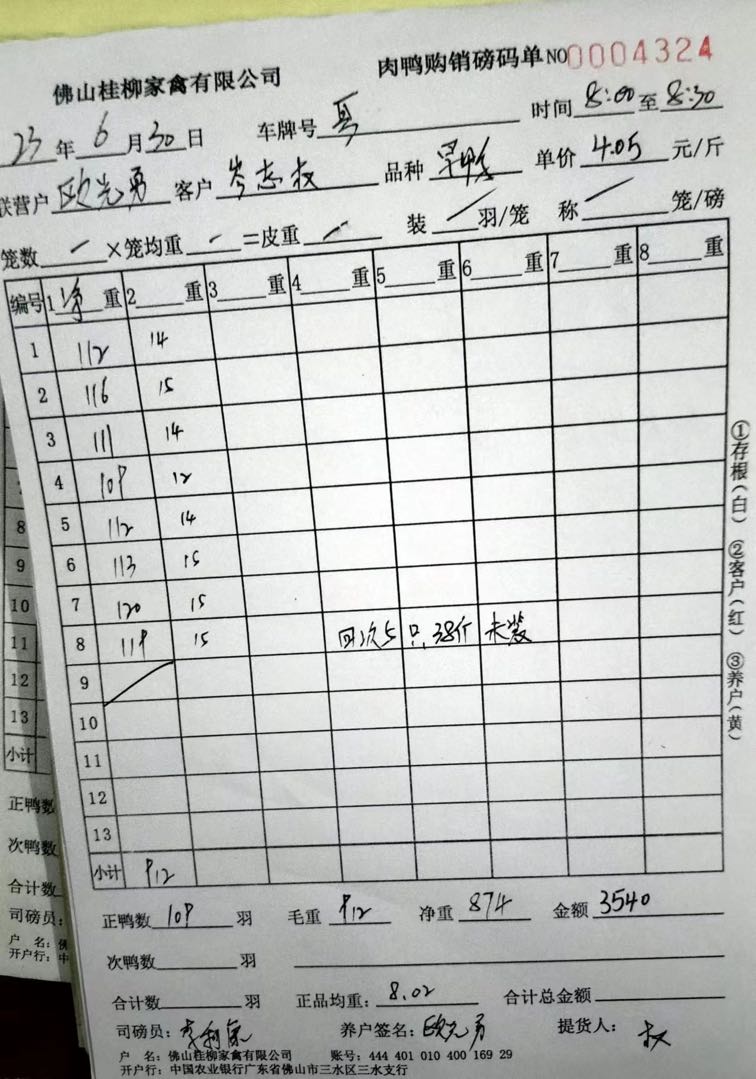 佛山桂柳家禽有限公司 肉鸭购销磅码单 NO0004324
23年6月30日 车牌号 时间8:00至8:30
联营户欧光勇 客户岑志权 品种 单价4.05元/斤
笼数 — ×笼均重 — =皮重 — 装 / 羽/笼 称 / 笼/磅
编号 1净重 2 重 3 重 4 重 5 重 6 重 7 重 8 重
1 112 14
2 116 15
3 111 14
4 109 12
5 112 14
6 113 15
7 120 15
8 119 15 回次5只,38斤 未装
9
10
11
12
13
小计 912
正鸭数109羽 毛重912 净重874 金额3540
次鸭数 羽
合计数 羽 正品均重:8.02 合计总金额
司磅员: 养户签名:欧光勇 提货人:权
户 名:佛山桂柳家禽有限公司 账号:444 401 010 400 169 29
开户行:中国农业银行广东省佛山市三水区三水支行
①存根(白) ②客户(红) ③养户(黄)
8
9
10
11
12
13
小计
正鸭数
次鸭数
合计数
司磅员:
户 名:佛
开户行:中